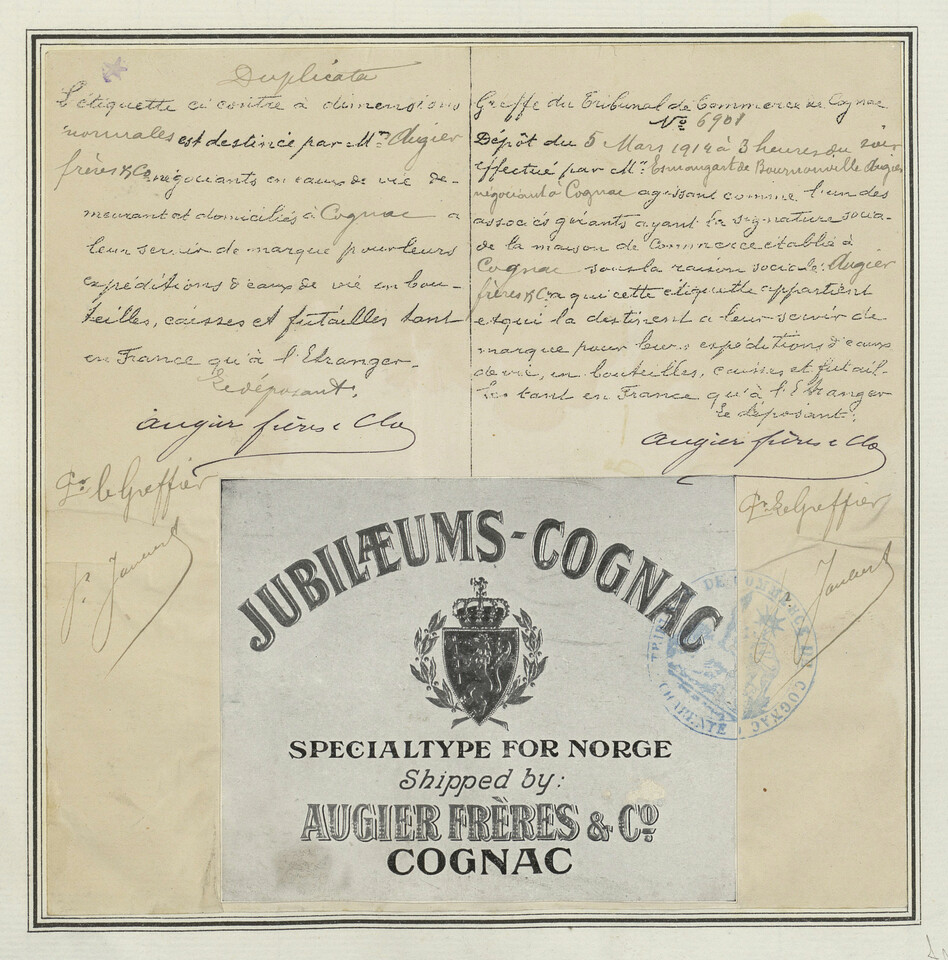 Duplicata
L'étiquette ci contre à dimensions
normales est destinée par Mrs Augier
frères & Co négociants en eaux de vie de-
meurant et domiciliés à Cognac a
leur servir de marque pour leurs
expéditions d'eaux de vie en bou-
teilles, caisses et futailles tant
en France qu'à l'Etranger.
Le déposant,
Augier frères & Co
Pr le Greffier
P. Jaubert
Greffe du Tribunal de Commerce de Cognac
No 6901
Dépôt du 5 Mars 1914 à 3 heures du soir
effectué par Mr Esmangart de Bournonville Augier
négociant à Cognac agissant comme l'un des
associés gérants ayant la signature socia-
de la maison de Commerce établie à
Cognac sous la raison sociale: Augier
frères & Co a qui cette étiquette appartient
et qui la destinent a leur servir de
marque pour leurs expéditions d'eaux
de vie, en bouteilles, caisses et futail-
les tant en France qu'à l'Etranger
Le déposant:
Augier frères & Co
Pr Le Greffier
P. Jaubert
JUBILÆUMS-COGNAC
SPECIALTYPE FOR NORGE
Shipped by:
AUGIER FRÈRES & Co
COGNAC
DE COMMERCE DE COGNAC
CHARENTE